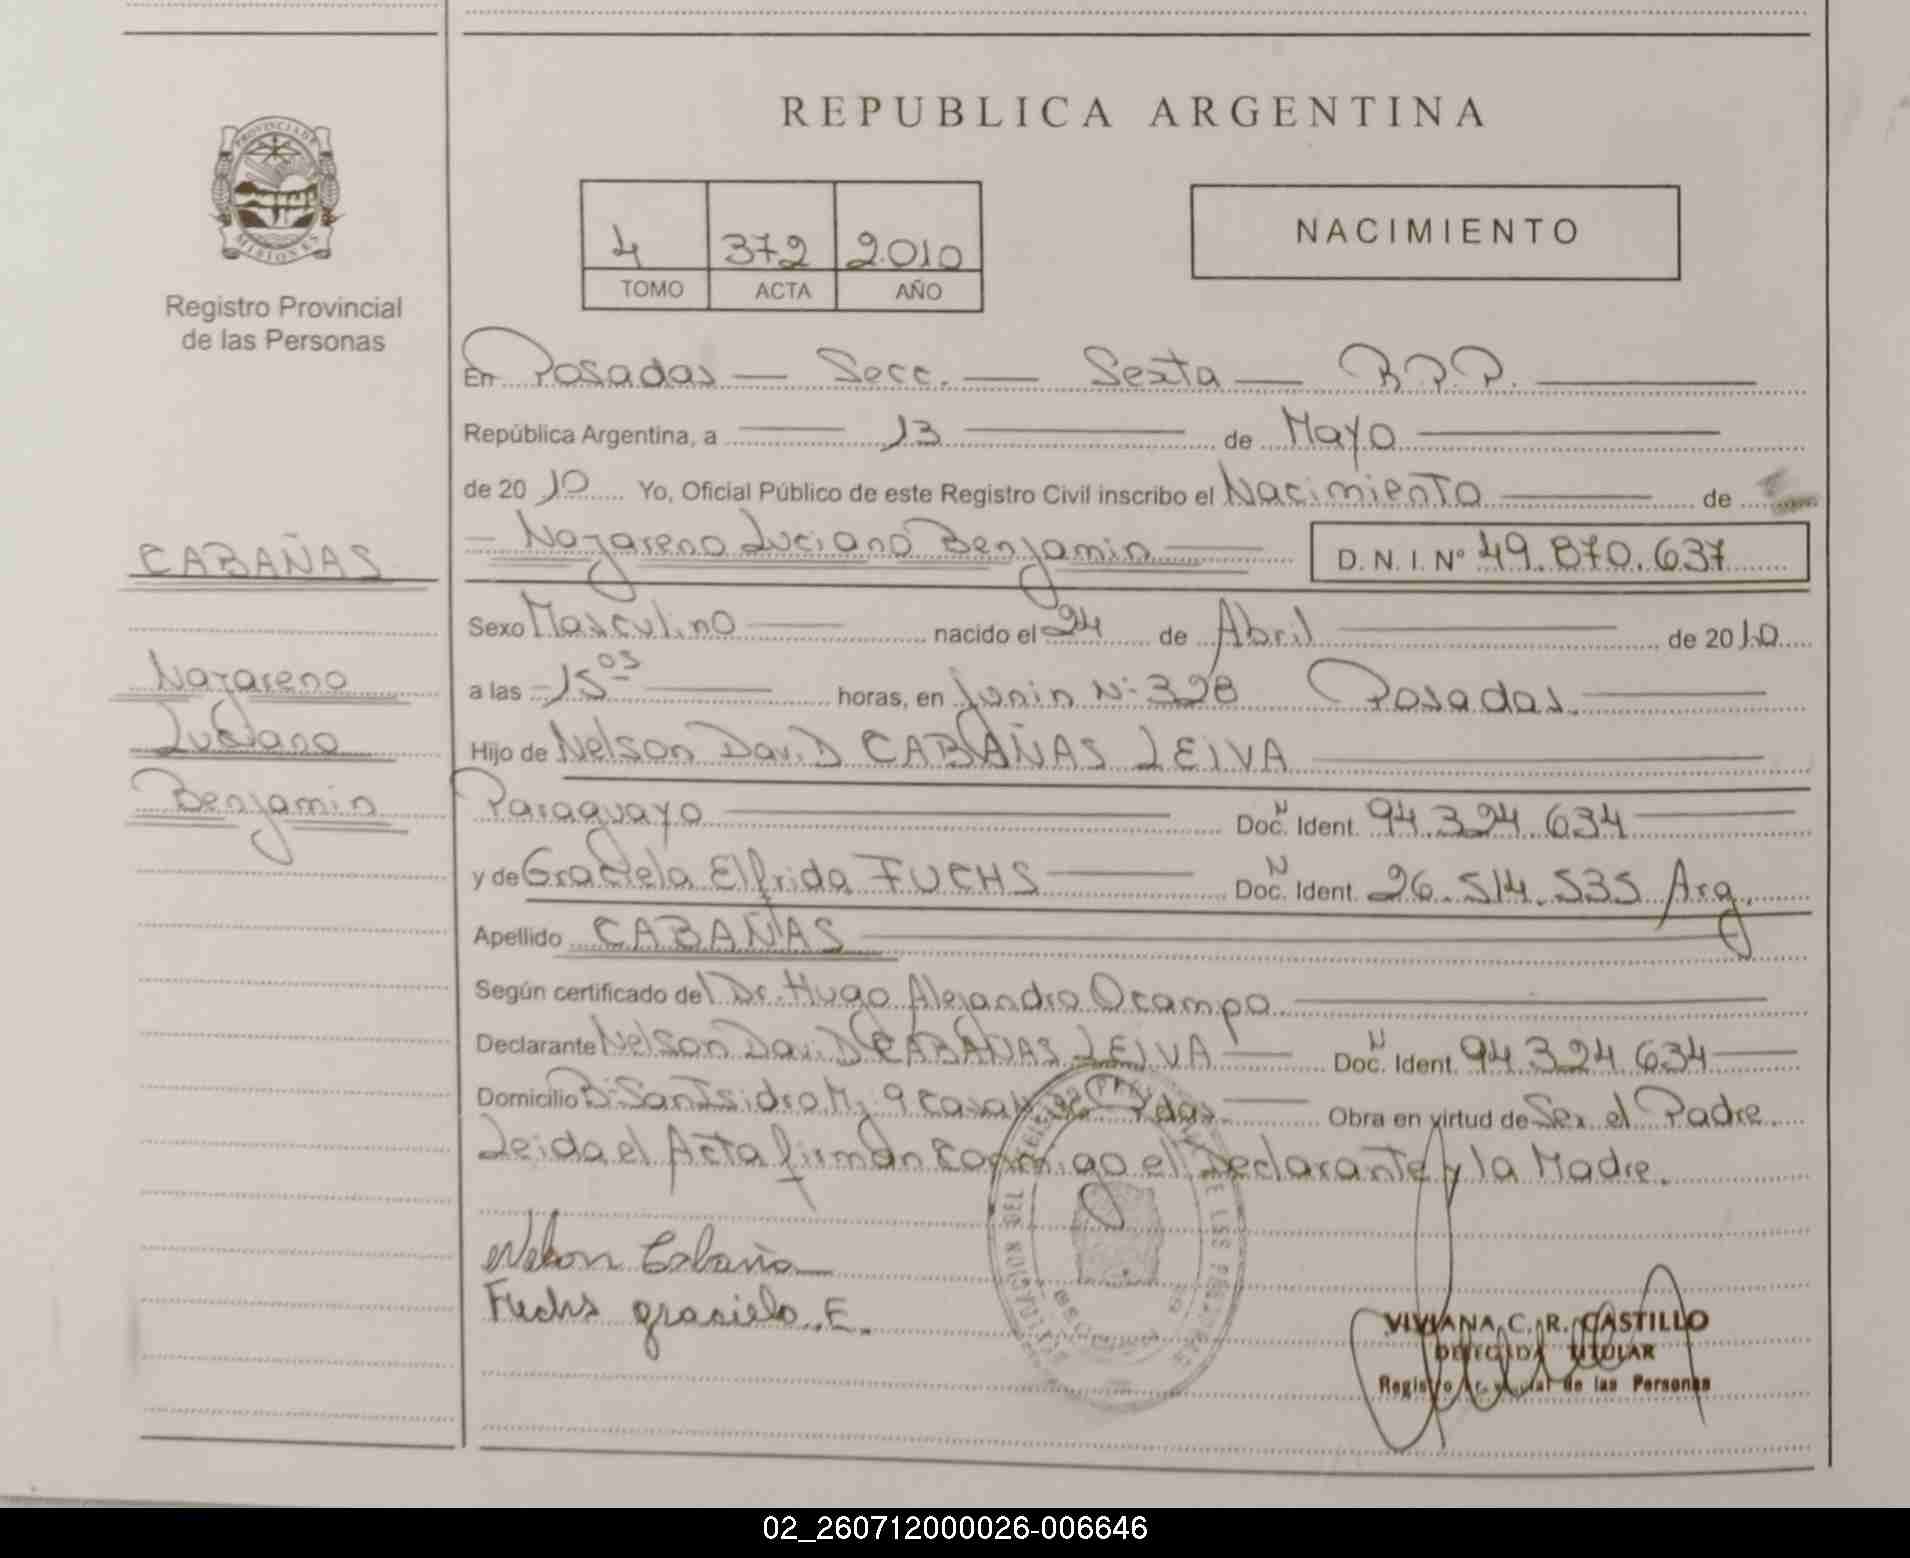 REPUBLICA ARGENTINA
PROVINCIA DE
MISIONES
Registro Provincial
de las Personas
4 372 2.010
TOMO ACTA AÑO
NACIMIENTO
En Posadas — Secc. — Sexta — R.P.P.
República Argentina, a 13 de Mayo
de 2010 Yo, Oficial Público de este Registro Civil inscribo el Nacimiento de
CABAÑAS
Nazareno Luciano Benjamin D.N.I. Nº 49.870.637
Sexo Masculino nacido el 24 de Abril de 2010
Nazareno
Luciano
Benjamin
a las 15 05 horas, en Junin Nº 328 Posadas.
Hijo de Nelson David CABAÑAS LEIVA
Paraguayo Doc. N Ident. 94.324.634
y de Graciela Elfrida FUCHS Doc. N Ident. 26.514.535 Arg.
Apellido CABAÑAS
Según certificado del Dr. Hugo Alejandro Ocampo
Declarante Nelson David CABAÑAS LEIVA Doc. N Ident. 94.324.634
Domicilio Bº San Isidro Mz 9 Casa Pdas. Obra en virtud de Ser el Padre.
Leida el Acta firman conmigo el Declarante y la Madre.
Nelson Cabaña
Fuchs graciela E.
VIVIANA C. R. CASTILLO
DELEGADA TITULAR
Registro Provincial de las Personas
02_260712000026-006646